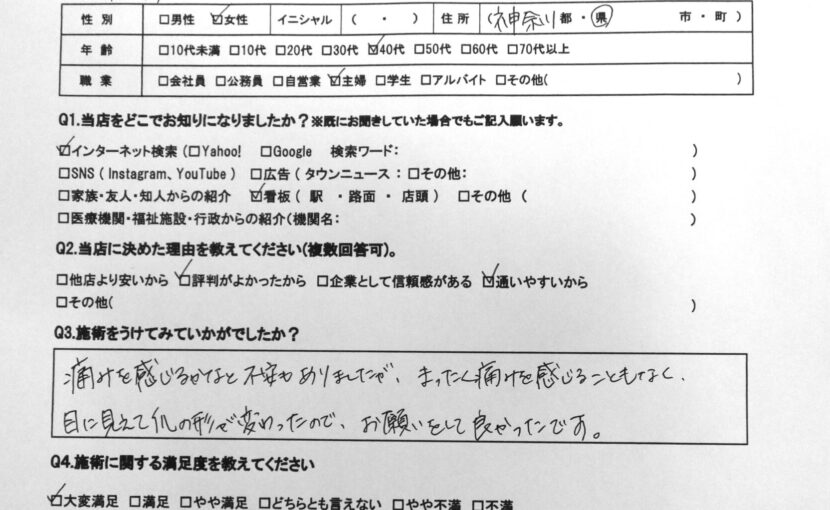 性別 □男性 ☑女性 イニシャル ( ・ ) 住所 (神奈川 都・県 市・町)
年齢 □10代未満 □10代 □20代 □30代 ☑40代 □50代 □60代 □70代以上
職業 □会社員 □公務員 □自営業 ☑主婦 □学生 □アルバイト □その他( )
Q1.当店をどこでお知りになりましたか?※既にお聞きしていた場合でもご記入願います。
☑インターネット検索 (□Yahoo! □Google 検索ワード: )
□SNS ( Instagram、YouTube ) □広告 ( タウンニュース : □その他: )
□家族・友人・知人からの紹介 ☑看板 ( 駅 ・路面 ・ 店頭 ) □その他 ( )
□医療機関・福祉施設・行政からの紹介(機関名: )
Q2.当店に決めた理由を教えてください(複数回答可)。
□他店より安いから ☑評判がよかったから □企業として信頼感がある ☑通いやすいから
□その他( )
Q3.施術をうけてみていかがでしたか?
痛みを感じるかなと不安もありましたが、まったく痛みを感じることもなく、
目に見えて爪の形が変わったので、お願いをして良かったです。
Q4.施術に関する満足度を教えてください
☑大変満足 □満足 □やや満足 □どちらとも言えない □やや不満 □不満